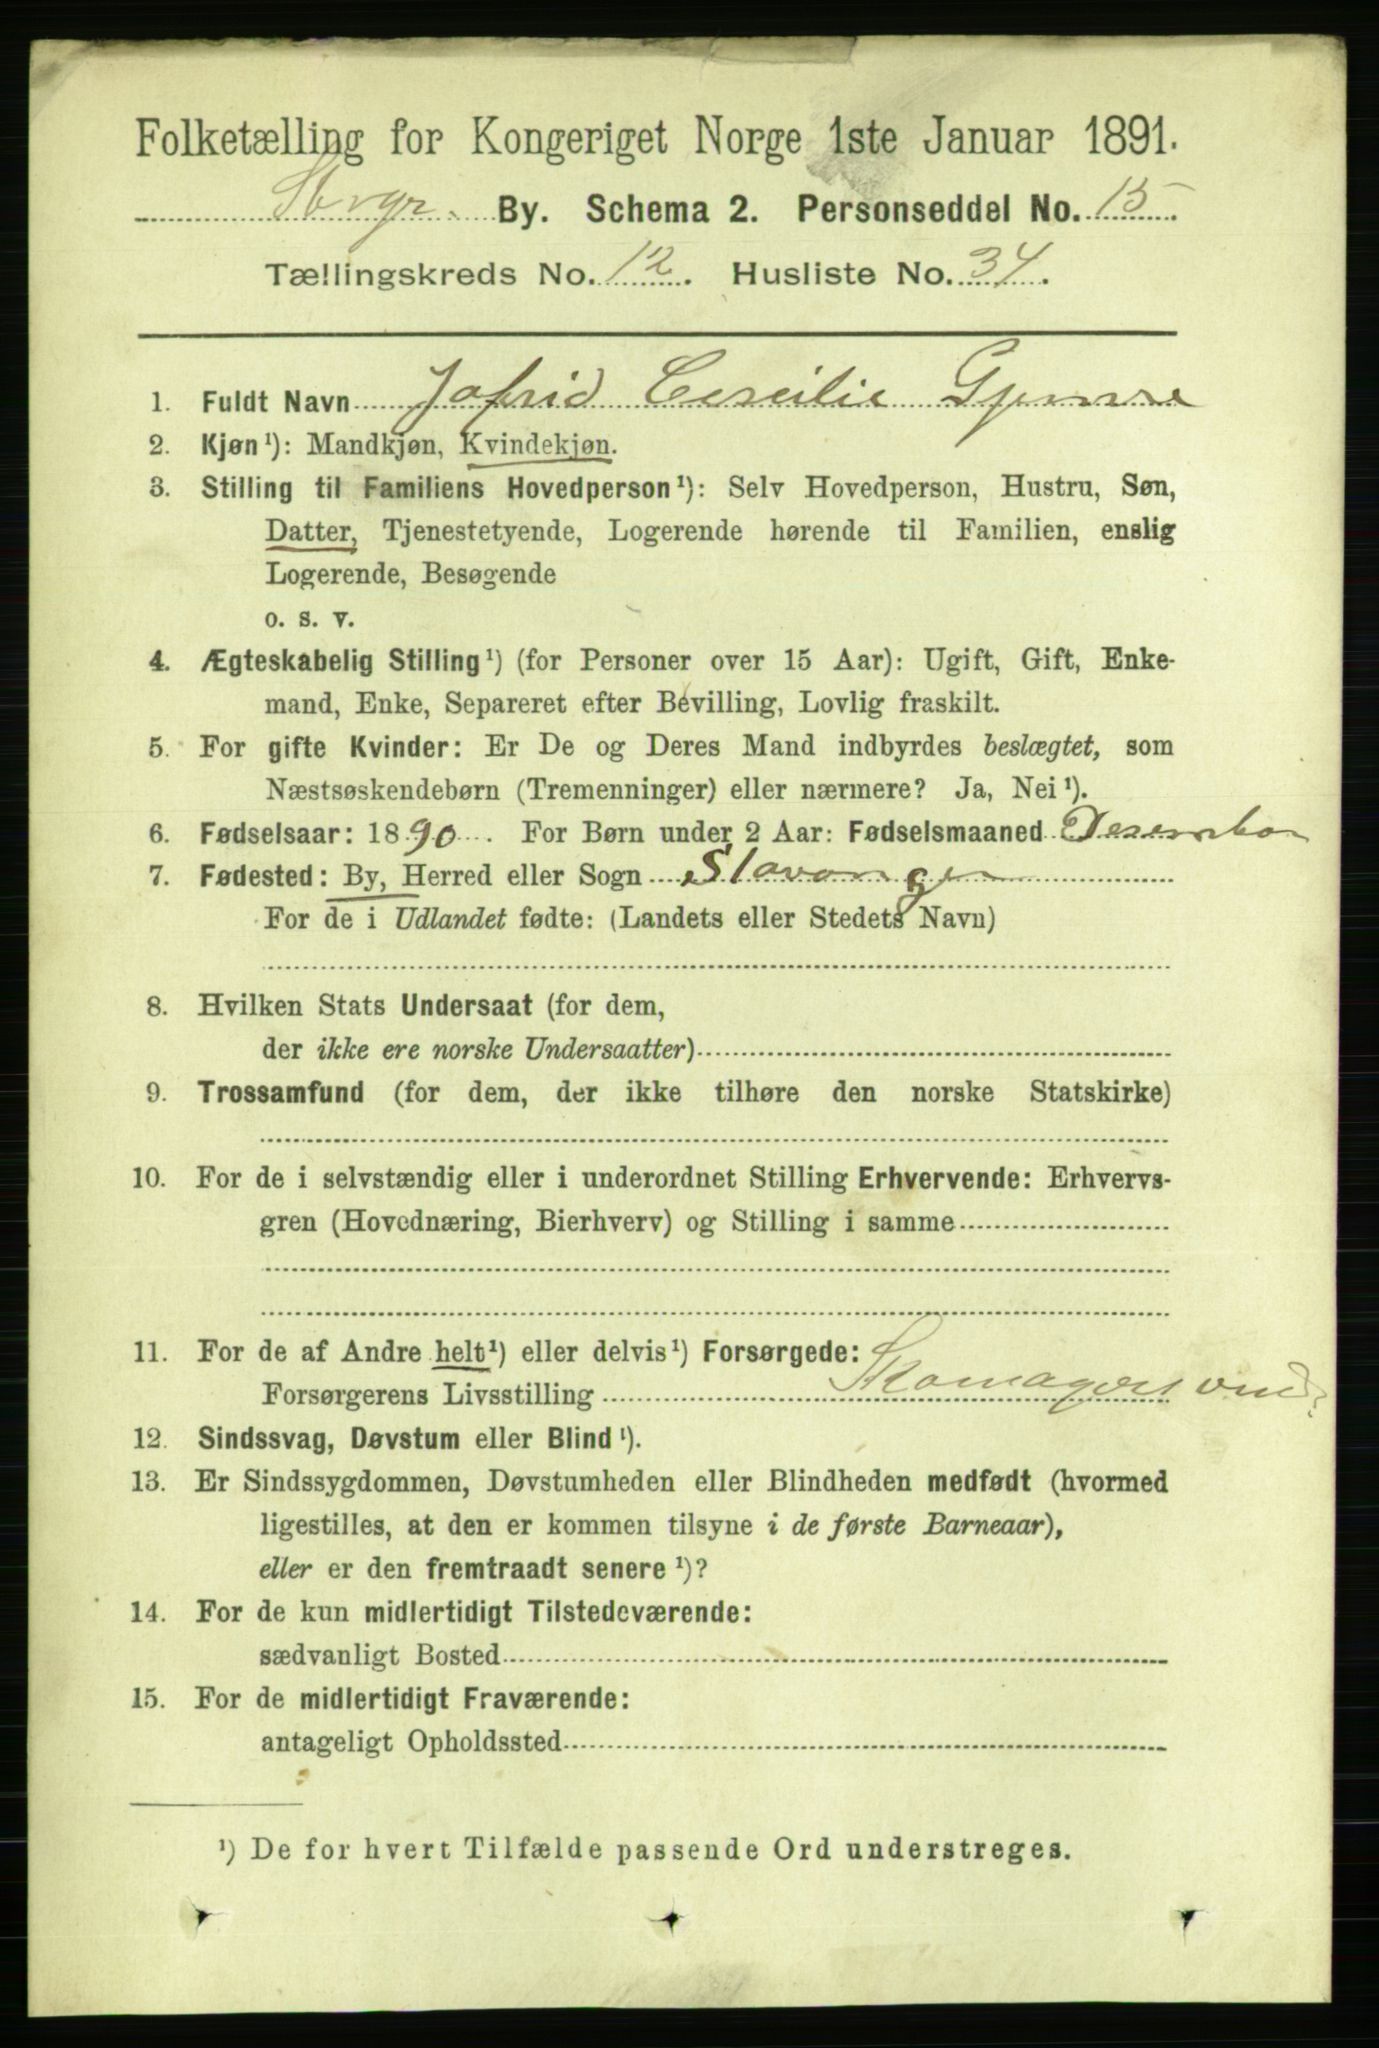 Folketælling for Kongeriget Norge 1ste Januar 1891.
Stvgr. By. Schema 2. Personseddel No. 15.
Tællingskreds No. 12. Husliste No. 34.
1. Fuldt Navn Jofrid Ceseilie
2. Kjøn¹): Mandkjøn, Kvindekjøn.
3. Stilling til Familiens Hovedperson¹): Selv Hovedperson, Hustru, Søn,
Datter, Tjenestetyende, Logerende hørende til Familien, enslig
Logerende, Besøgende
o. s. v.
4. Ægteskabelig Stilling¹) (for Personer over 15 Aar): Ugift, Gift, Enke-
mand, Enke, Separeret efter Bevilling, Lovlig fraskilt.
5. For gifte Kvinder: Er De og Deres Mand indbyrdes beslægtet, som
Næstsøskendebørn (Tremenninger) eller nærmere? Ja, Nei¹).
6. Fødselsaar: 1890. For Børn under 2 Aar: Fødselsmaaned Desember
7. Fødested: By, Herred eller Sogn Stavanger
For de i Udlandet fødte: (Landets eller Stedets Navn)
8. Hvilken Stats Undersaat (for dem,
der ikke ere norske Undersaatter)
9. Trossamfund (for dem, der ikke tilhøre den norske Statskirke)
10. For de i selvstændig eller i underordnet Stilling Erhvervende: Erhvervs-
gren (Hovednæring, Bierhverv) og Stilling i samme
11. For de af Andre helt¹) eller delvis¹) Forsørgede:
Forsørgerens Livsstilling Skomagersvend
12. Sindssvag, Døvstum eller Blind¹).
13. Er Sindssygdommen, Døvstumheden eller Blindheden medfødt (hvormed
ligestilles, at den er kommen tilsyne i de første Barneaar),
eller er den fremtraadt senere¹)?
14. For de kun midlertidigt Tilstedeværende:
sædvanligt Bosted
15. For de midlertidigt Fraværende:
antageligt Opholdssted
¹) De for hvert Tilfælde passende Ord understreges.